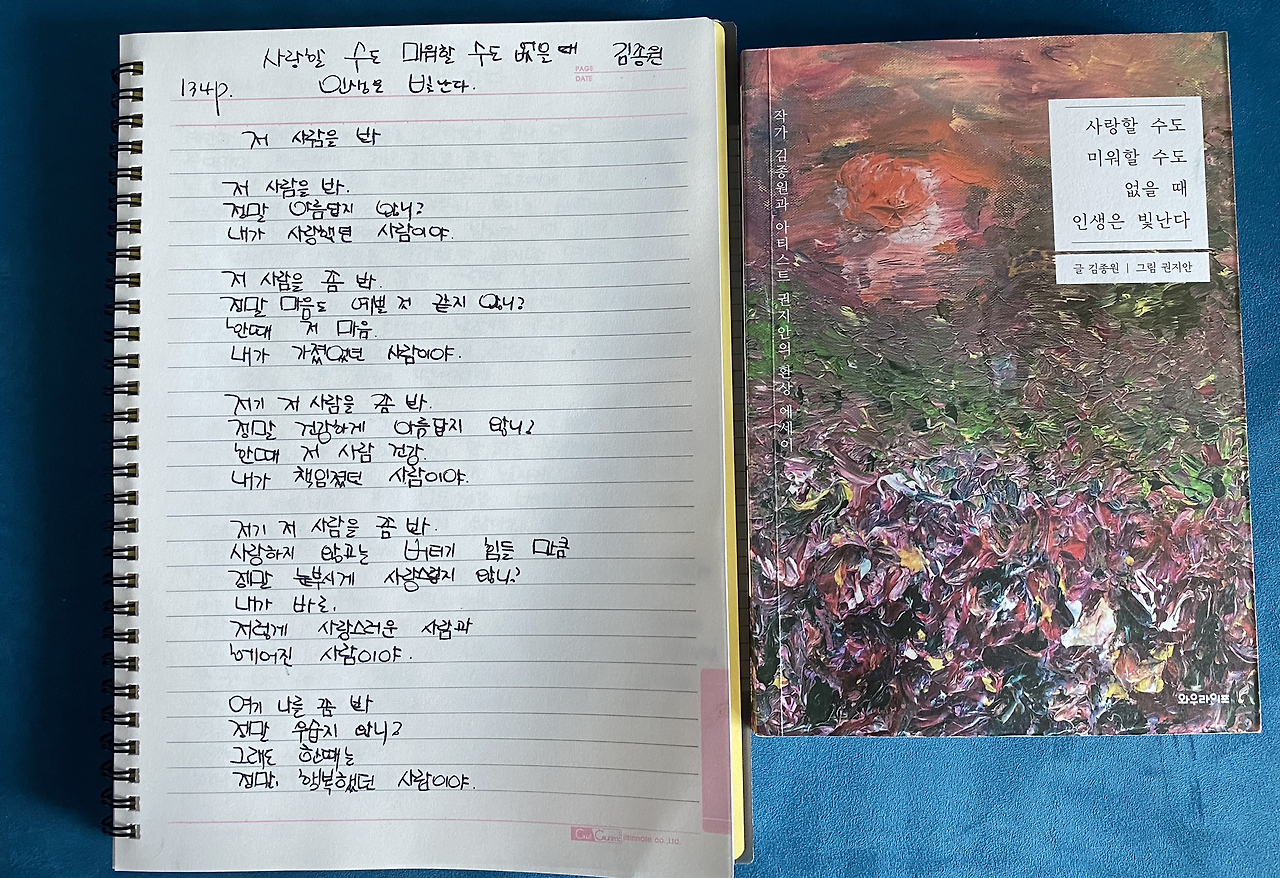 사랑할 수도 미워할 수도 없을 때 김종원
134p. 인생은 빛난다.
PAGE
DATE
저 사람을 봐
저 사람을 봐.
정말 아름답지 않니?
내가 사랑했던 사람이야.
저 사람을 좀 봐.
정말 마음도 예쁠 것 같지 않니?
한때 저 마음.
내가 가졌었던 사람이야.
저기 저 사람을 좀 봐.
정말 건강하게 아름답지 않니?
한때 저 사람 건강.
내가 책임졌던 사람이야.
저기 저 사람을 좀 봐.
사랑하지 않고는 버티기 힘들 만큼
정말 눈부시게 사랑스럽지 않니?
내가 바로.
저렇게 사랑스러운 사람과
헤어진 사람이야.
여기 나를 좀 봐
정말 우습지 않니?
그래도 한때는
정말. 행복했던 사람이야.
co.,Ltd.
작가 김종원과 아티스트 권지안의 환상 에세이
사랑할 수도
미워할 수도
없을 때
인생은 빛난다
글 김종원 | 그림 권지안
와우라이프